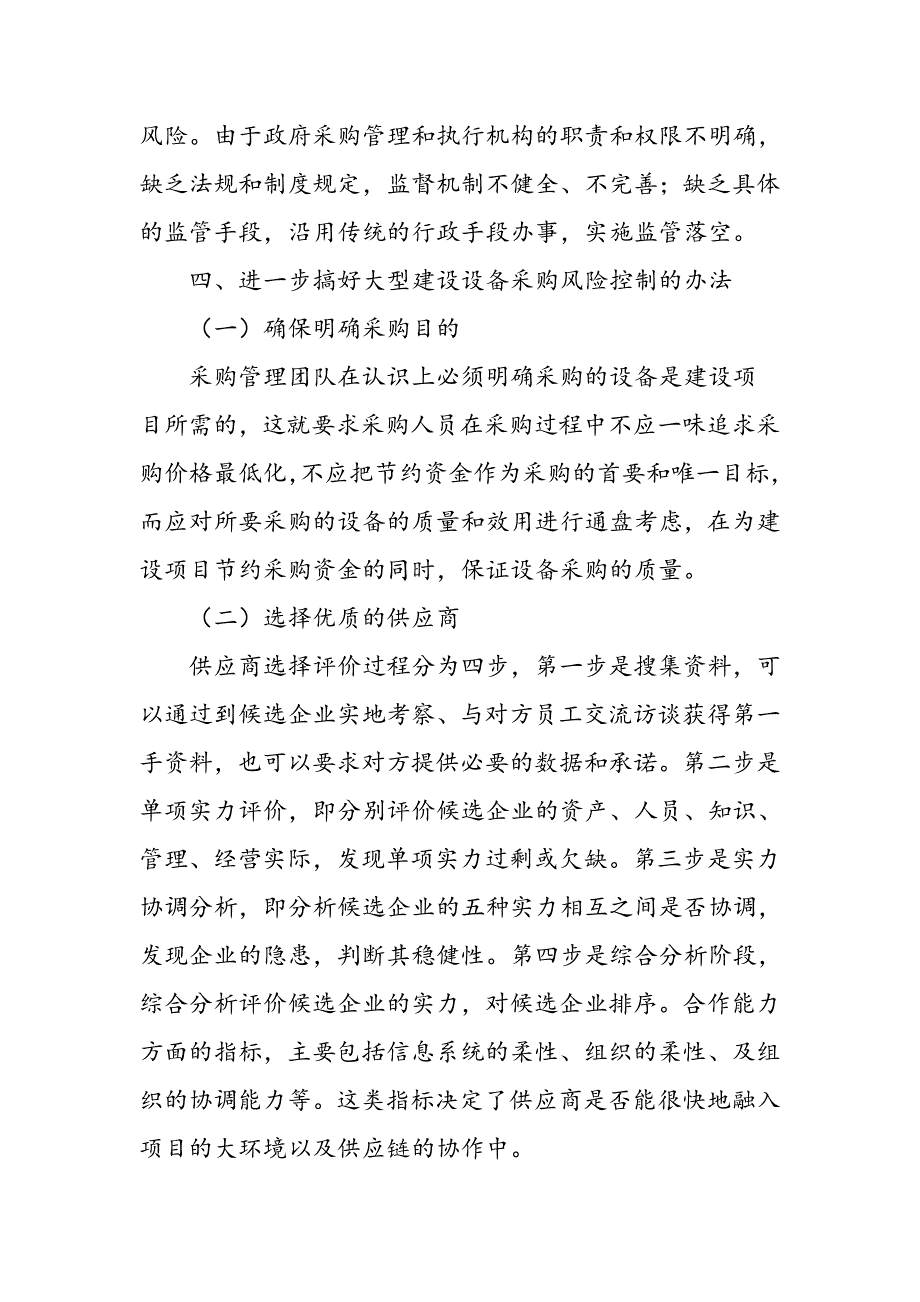 风险。由于政府采购管理和执行机构的职责和权限不明确，
缺乏法规和制度规定，监督机制不健全、不完善；缺乏具体
的监管手段，沿用传统的行政手段办事，实施监管落空。
四、进一步搞好大型建设设备采购风险控制的办法
（一）确保明确采购目的
采购管理团队在认识上必须明确采购的设备是建设项
目所需的，这就要求采购人员在采购过程中不应一味追求采
购价格最低化，不应把节约资金作为采购的首要和唯一目标，
而应对所要采购的设备的质量和效用进行通盘考虑，在为建
设项目节约采购资金的同时，保证设备采购的质量。
（二）选择优质的供应商
供应商选择评价过程分为四步，第一步是搜集资料，可
以通过到候选企业实地考察、与对方员工交流访谈获得第一
手资料，也可以要求对方提供必要的数据和承诺。第二步是
单项实力评价，即分别评价候选企业的资产、人员、知识、
管理、经营实际，发现单项实力过剩或欠缺。第三步是实力
协调分析，即分析候选企业的五种实力相互之间是否协调，
发现企业的隐患，判断其稳健性。第四步是综合分析阶段，
综合分析评价候选企业的实力，对候选企业排序。合作能力
方面的指标，主要包括信息系统的柔性、组织的柔性、及组
织的协调能力等。这类指标决定了供应商是否能很快地融入
项目的大环境以及供应链的协作中。